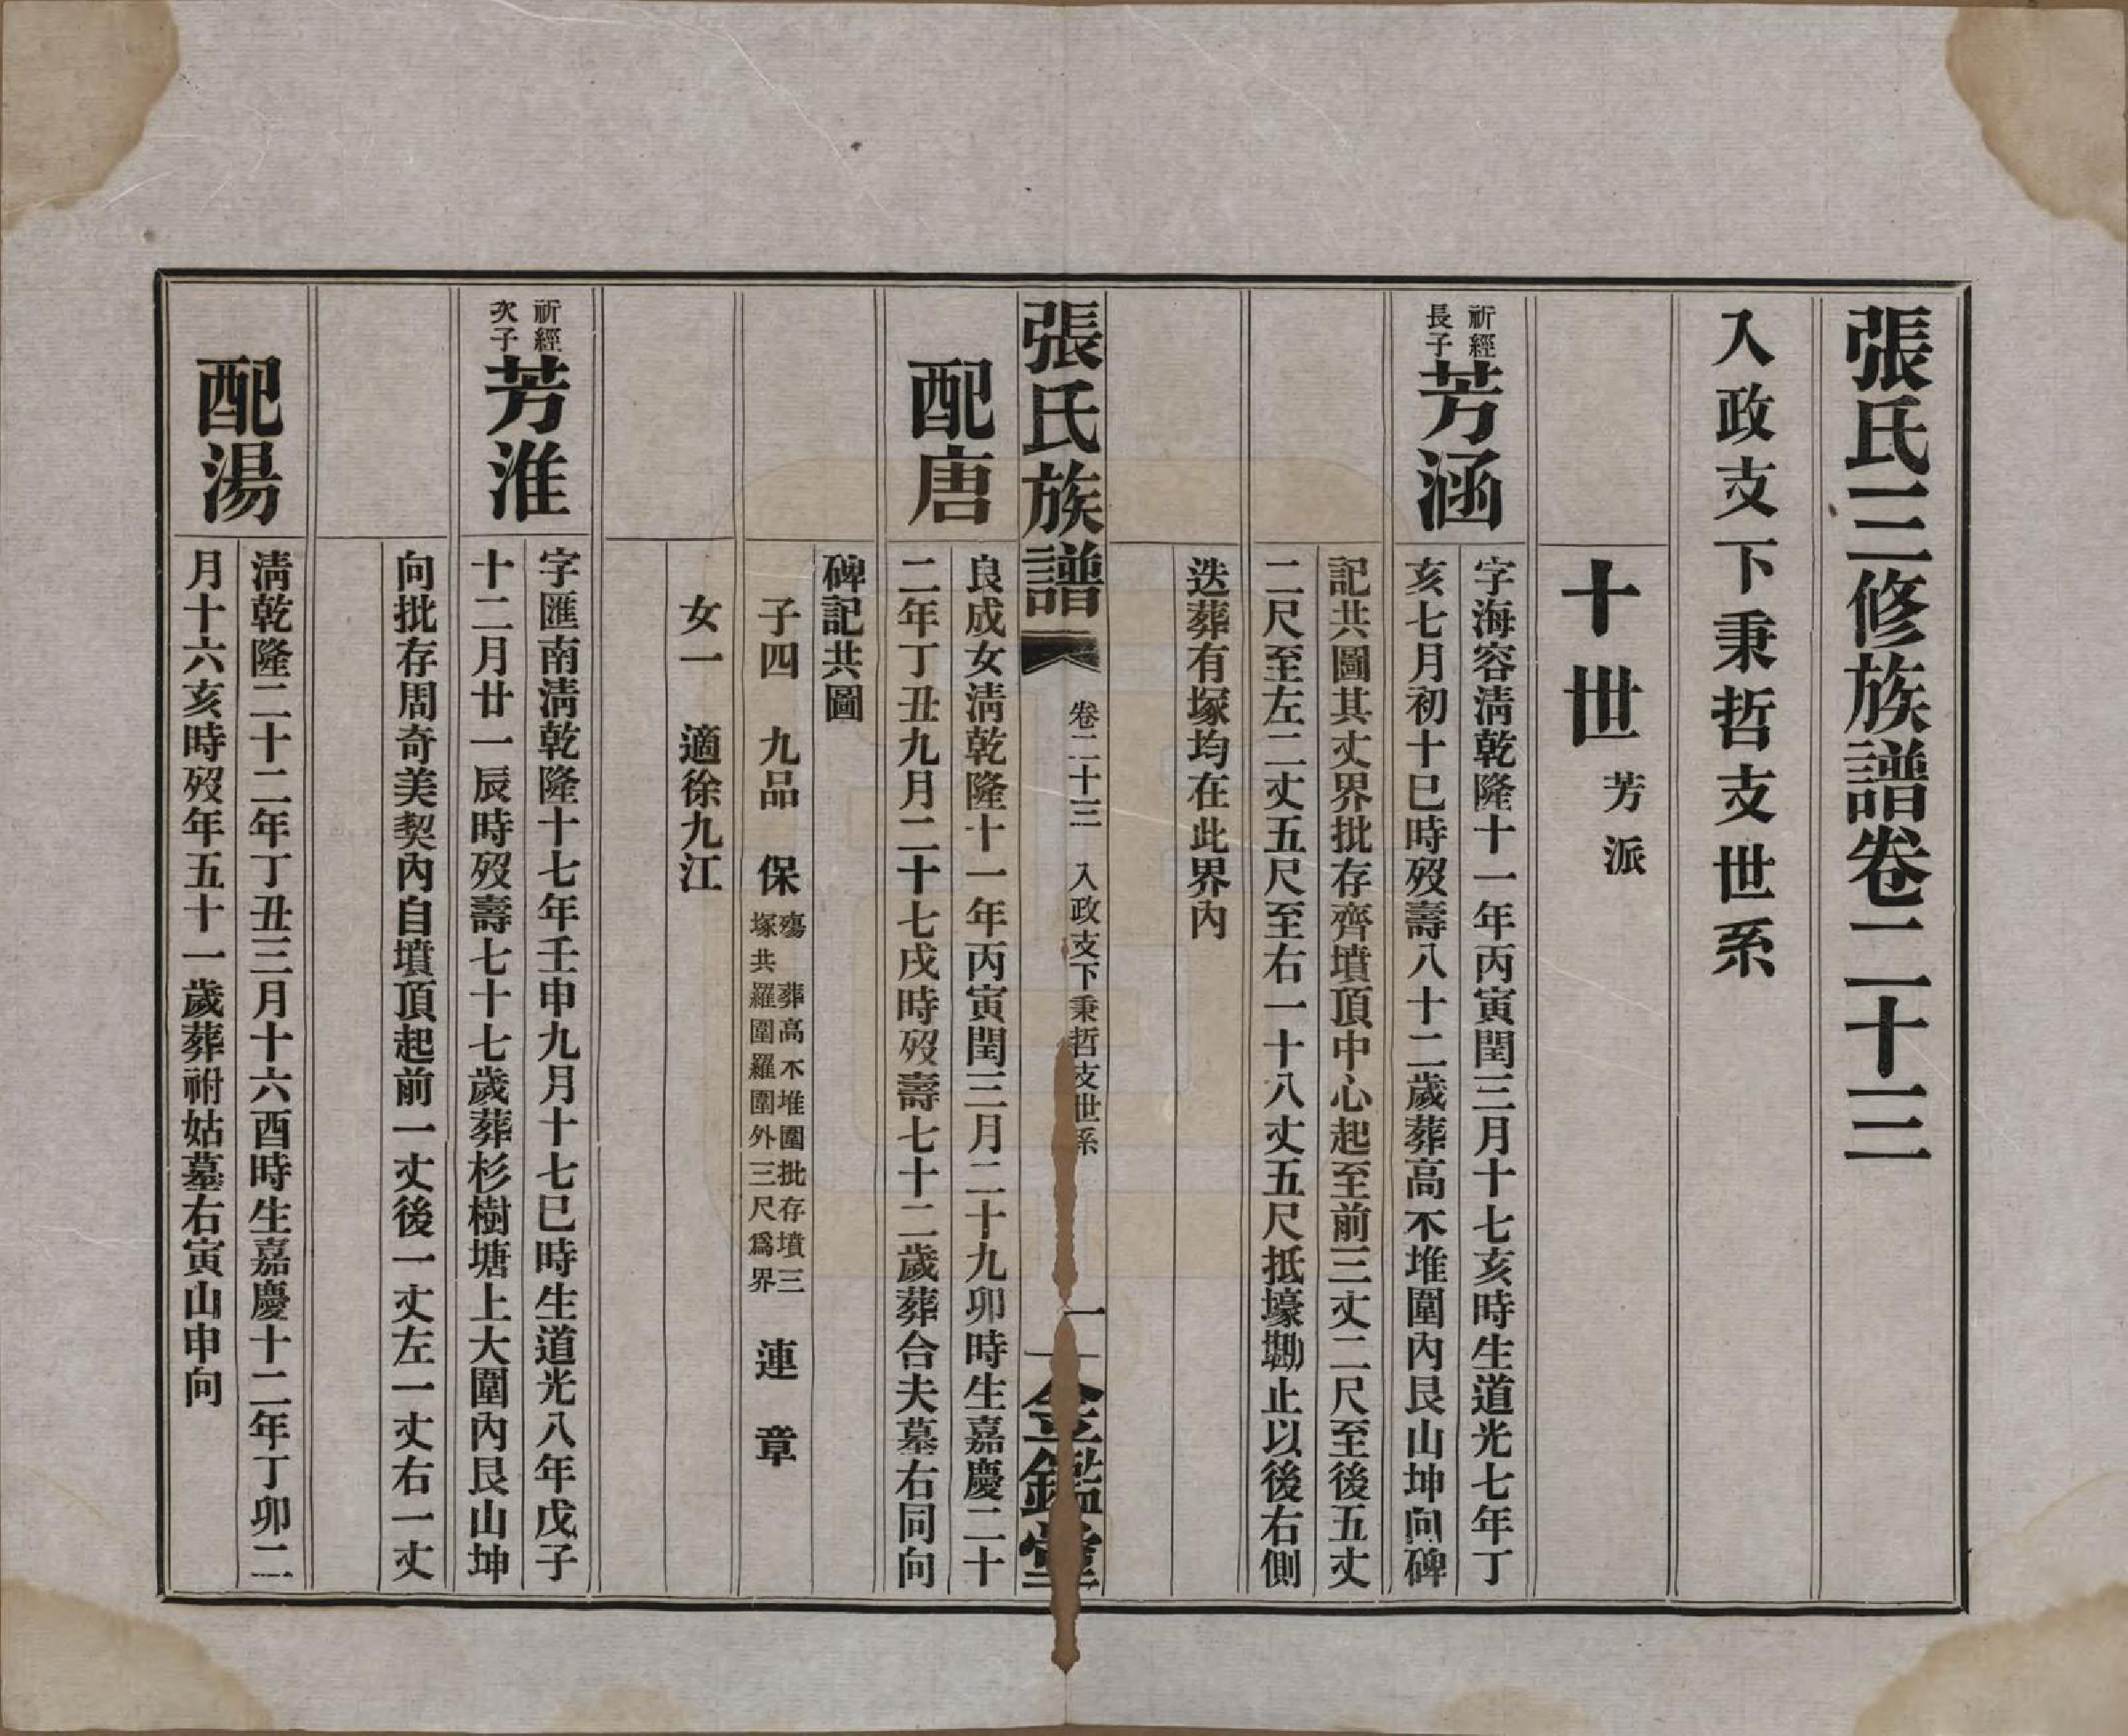 張氏三修族譜卷二十三
入政支下秉哲支世系
十世芳派
祈經
長子
芳涵
字海容淸乾隆十一年丙寅閏三月十七亥時生道光七年丁
亥七月初十巳時歿壽八十二歲葬高不堆圍內艮山坤向碑
記共圖其丈界批存齊墳頂中心起至前三丈二尺至後五丈
二尺至左二丈五尺至右一十八丈五尺抵壕墈止以後右側
迭葬有塚均在此界內
張氏族譜
卷二十三
入政支下秉哲支世系
一
金鑑堂
配唐
良成女淸乾隆十一年丙寅閏三月二十九卯時生嘉慶二十
二年丁丑九月二十七戌時歿壽七十二歲葬合夫墓右同向
碑記共圖
子四 九品 保
殤 葬高不堆圍批存墳三
塚共羅圍羅圍外三尺爲界
連 章
女一 適徐九江
祈經
次子
芳淮
字匯南淸乾隆十七年壬申九月十七巳時生道光八年戊子
十二月廿一辰時歿壽七十七歲葬杉樹塘上大圍內艮山坤
向批存周奇美契內自墳頂起前一丈後一丈左一丈右一丈
配湯
淸乾隆二十二年丁丑三月十六酉時生嘉慶十二年丁卯二
月十六亥時歿年五十一歲葬祔姑墓右寅山申向